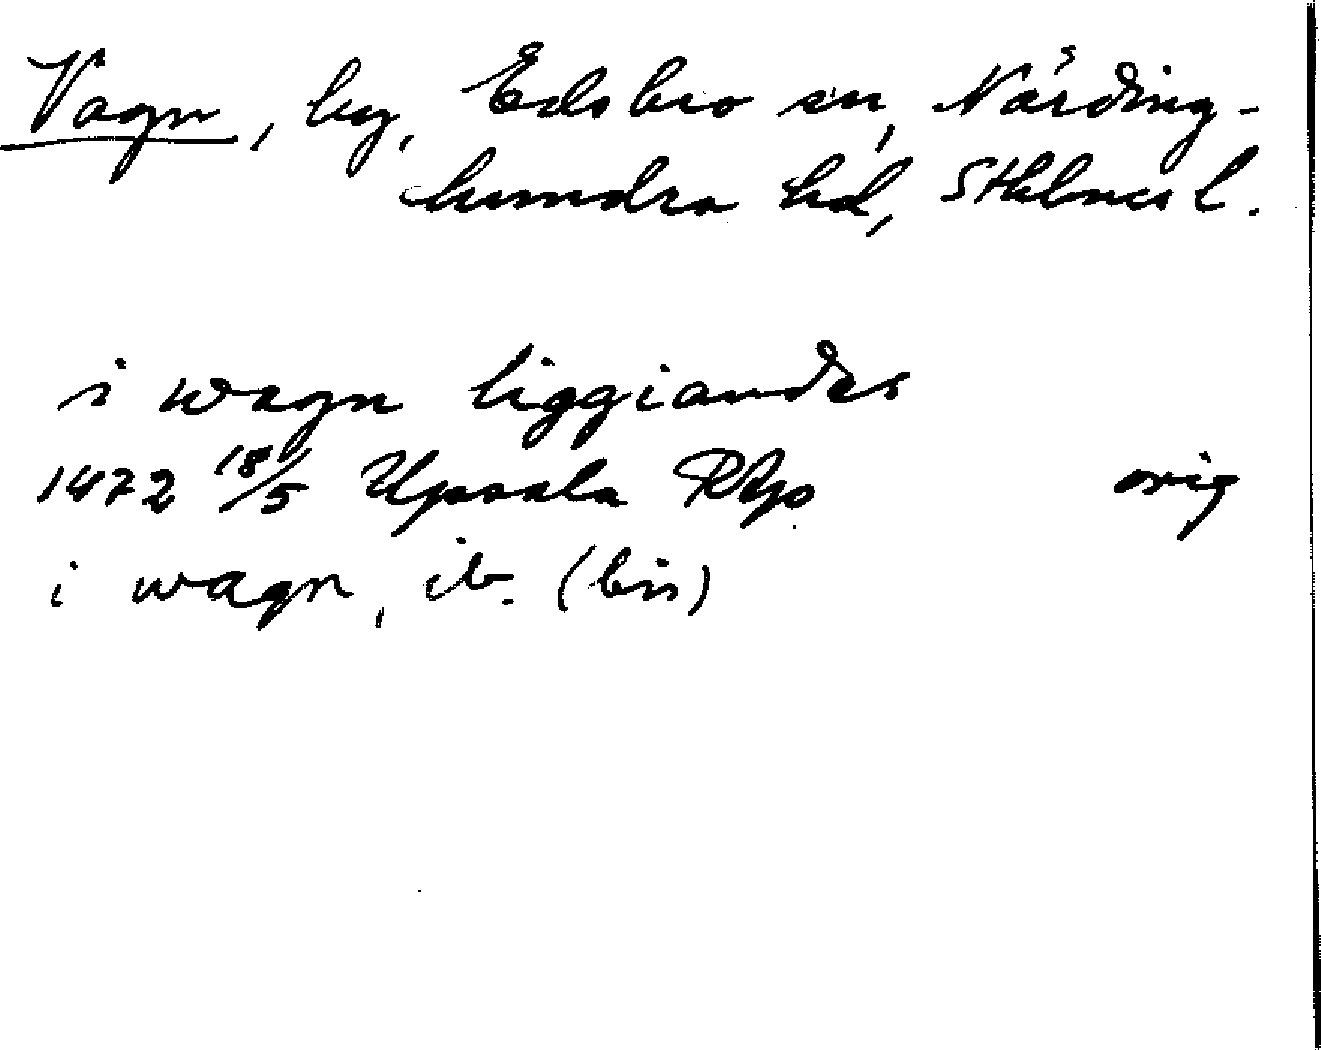 Vagn, by, Edsbro sn, Närding-
hundra hd, Sthlms l.
i wagn liggiandes
1472 18/5 Upsala RAp orig
i wagn, ib. (bis)